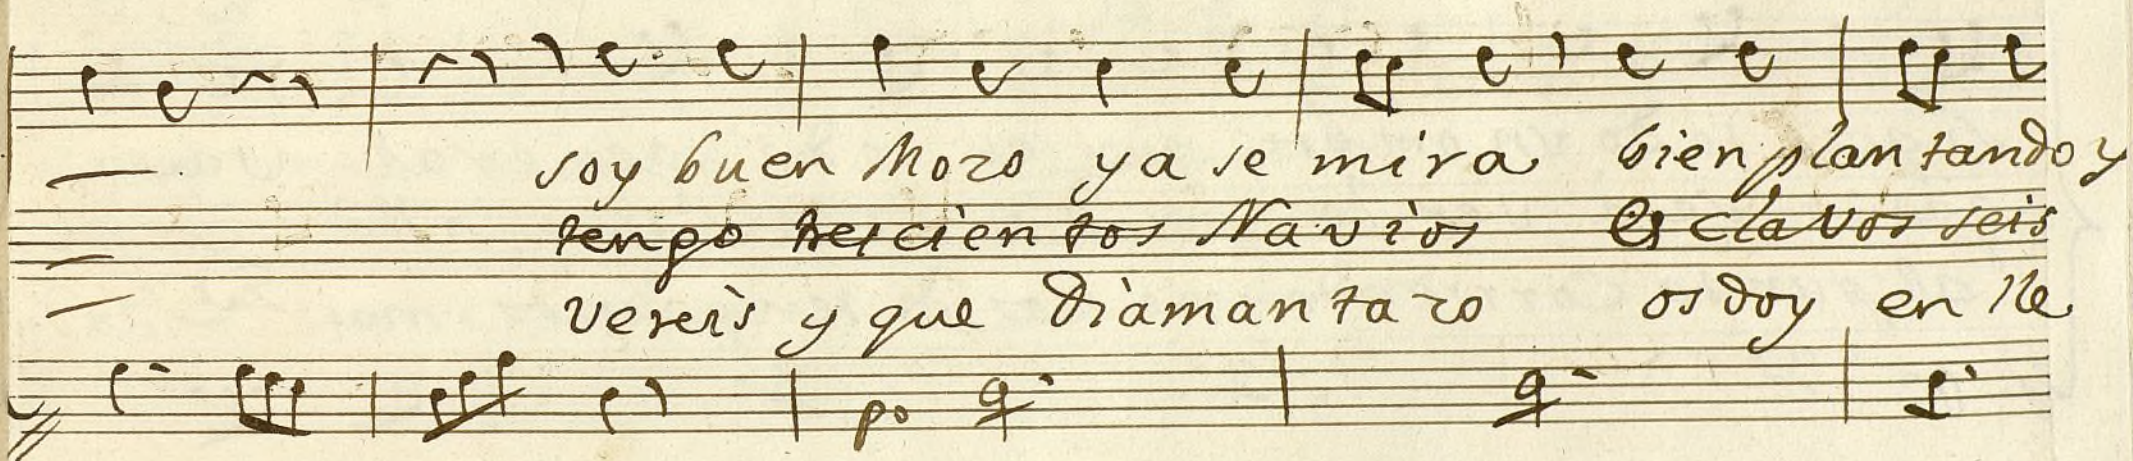 soy buen Moro ya se mira bien plantando y
tengo trescientos Navios Esclavos seis
vereis y que diamantazo os doy en lle
po